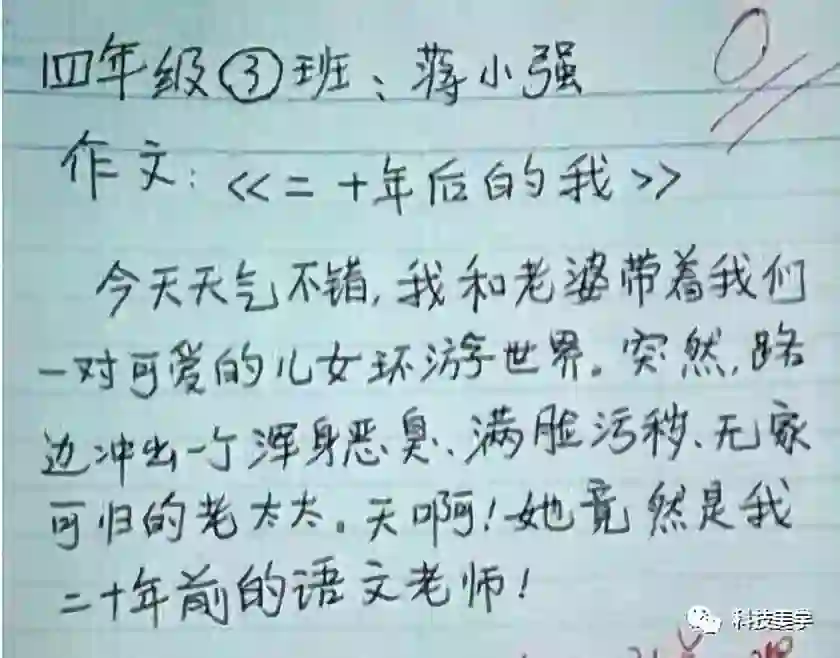 四年级③班、蒋小强
作文:《二十年后的我》
今天天气不错,我和老婆带着我们
一对可爱的儿女环游世界。突然,路
边冲出一个浑身恶臭、满脸污秽、无家
可归的老太太。天啊!她竟然是我
二十年前的语文老师!
科技美学